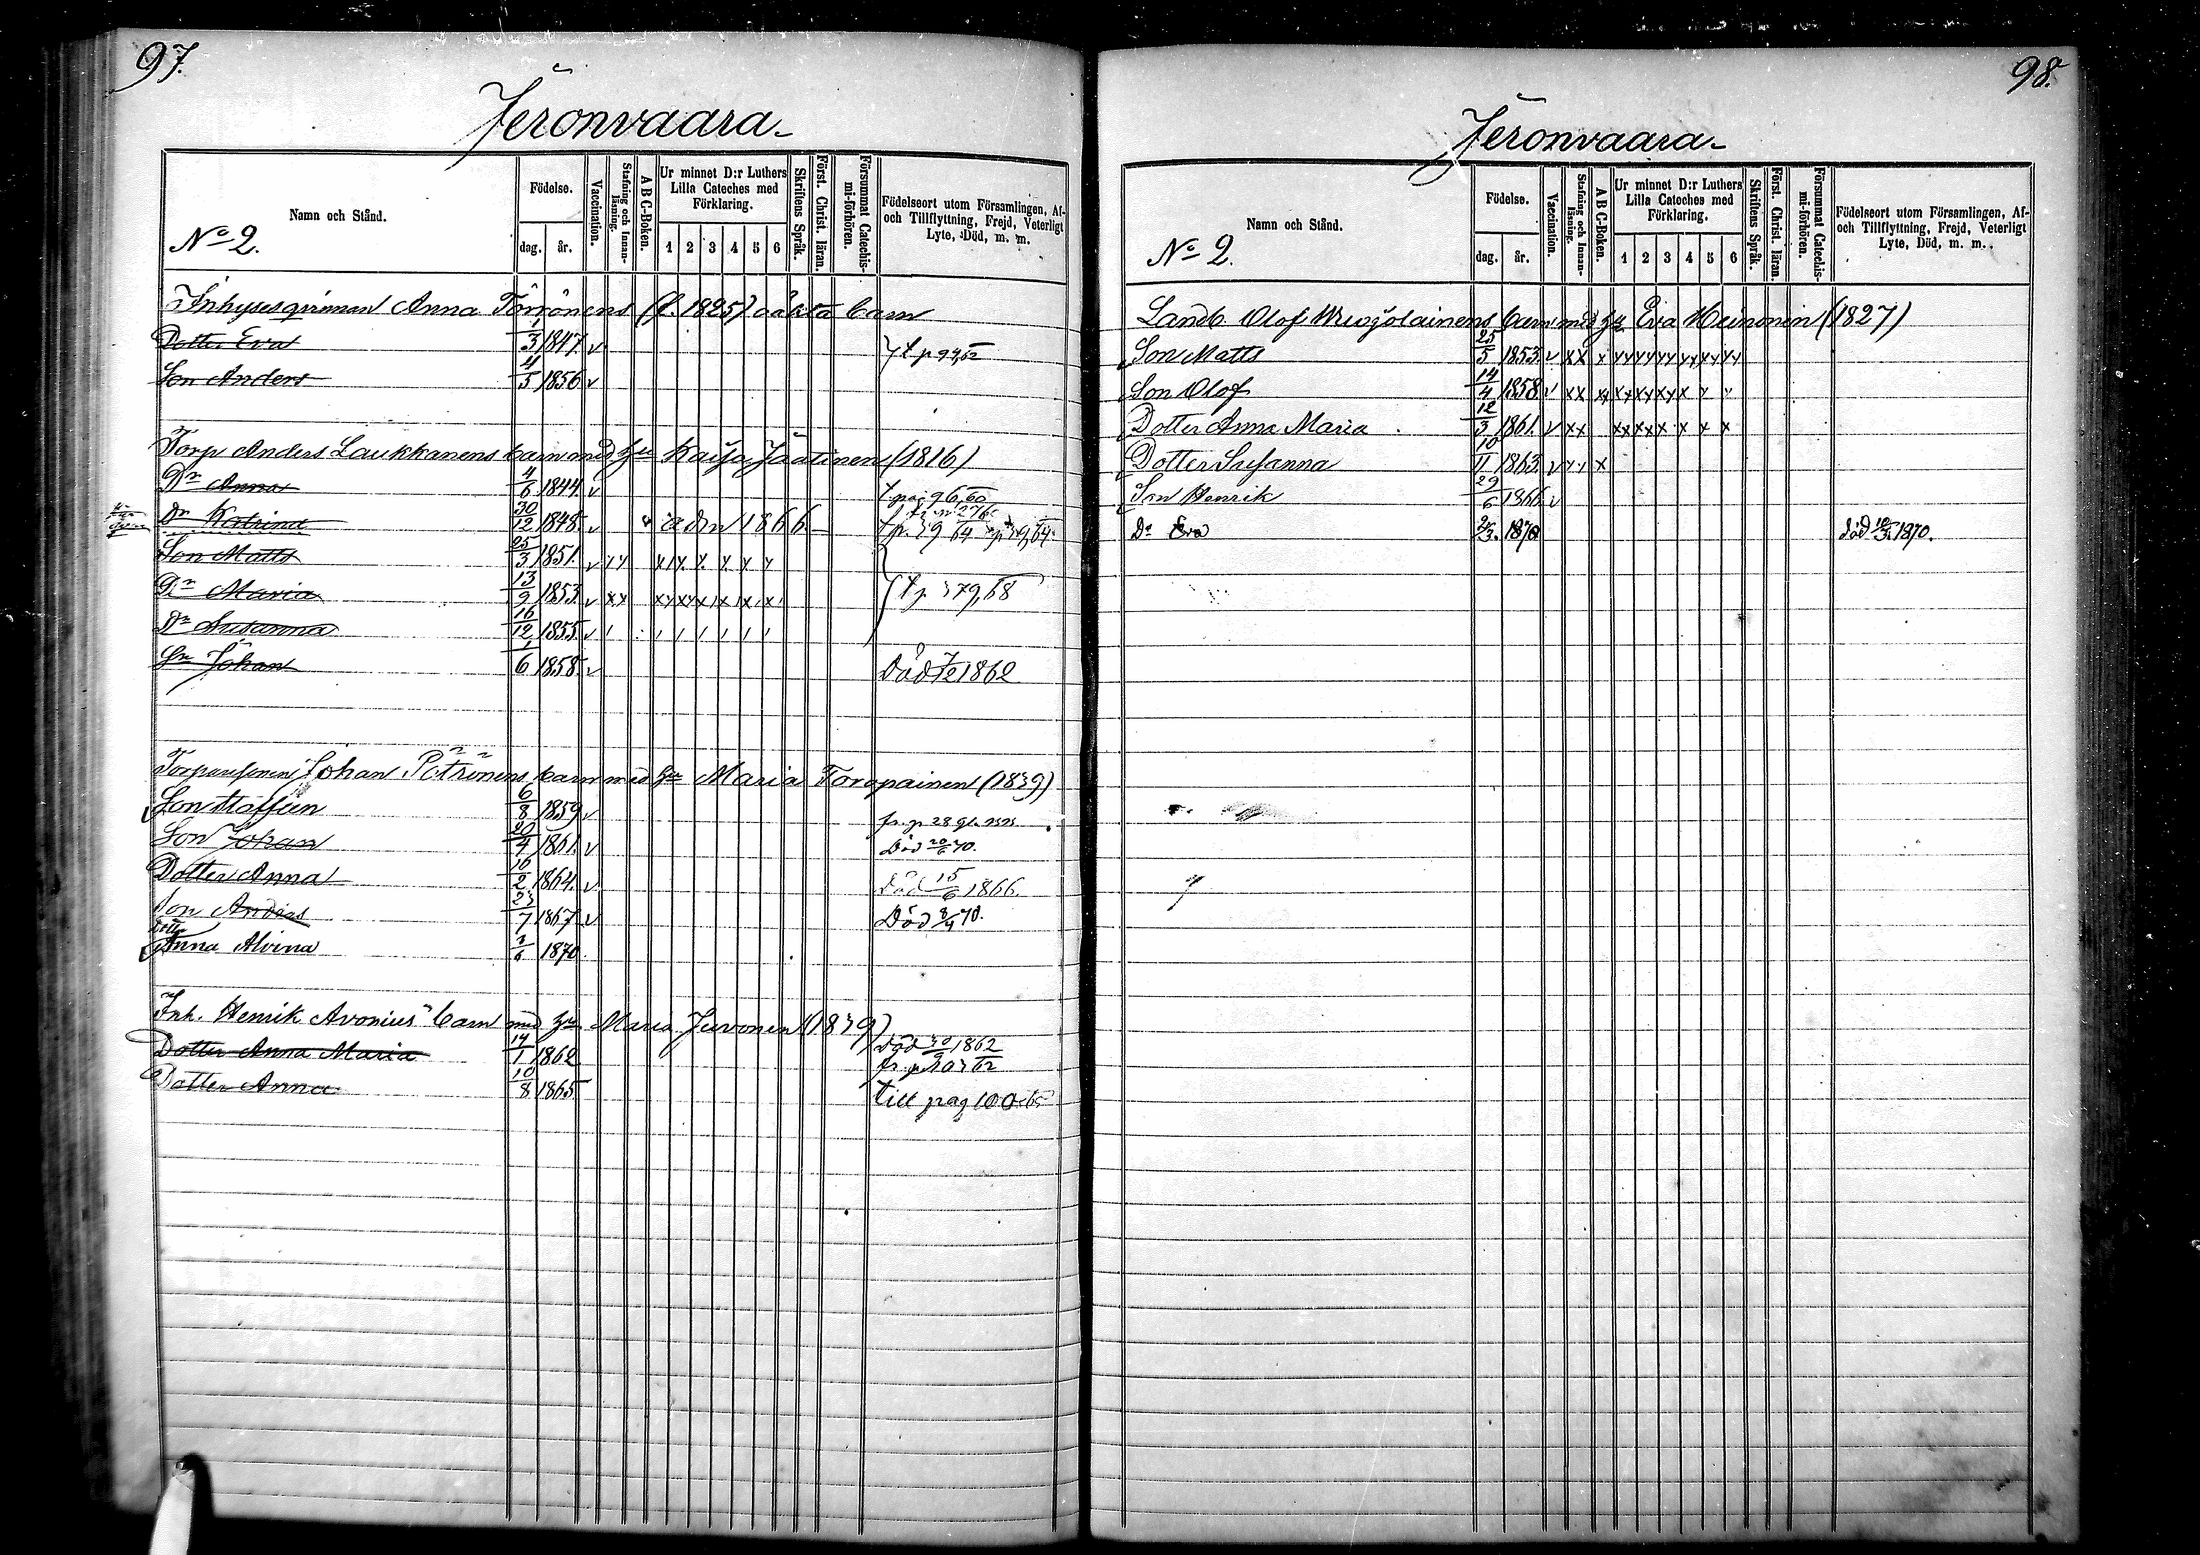 97.
Jeronvaara
Namn och Stånd.
No 2.
Födelse.
dag. år.
Vaccination.
Stafning och Innan-läsning.
A B C-Boken.
Ur minnet D:r Luthers Lilla Cateches med Förklaring.
1 2 3 4 5 6
Skriftens Språk.
Först. Christ. läran.
Försummat Catechis-mi-förhören.
Födelseort utom Församlingen, Af- och Tillflyttning, Frejd, Veterligt Lyte, Död, m. m.
Inhyseqvinnan Anna Törrönens (f. 1825) oäkta barn
Dotter Eva 1/3 1847 v
Son Anders 4/5 1856 v
Torp Anders Laukkanens barn med hu Kaisa Jäätinen (1816)
Dr Anna 4/6 1844 v
Dr Katrina 30/12 1848 v adm 1866
Son Matts 25/3 1851 v
Dr Maria 13/9 1853 v
Dr Susanna 16/12 1855 v
Sn Johan 1/6 1858 v Död 7/2 1862
Johan Pötrönens barn med hu Maria Toropainen (1839)
Son Staffan 6/8 1859 v
Son Johan 20/4 1861 v Död 20/6 70.
Dotter Anna 10/2 1864 v Död 15/6 1866.
Son Anders 23/7 1867 v Död 8/4 70.
Dotter
Anna Alvina 3/6 1870
Inh. Henrik Avonius barn med hu Maria Juvonen (1839)
Dotter Anna Maria 14/1 1862 Död 30/9 1862
Dotter Anna 10/8 1865 till pag 100 65
98.
Jeronvaara
Namn och Stånd.
No 2.
Födelse.
dag. år.
Vaccination.
Stafning och Innan-läsning.
A B C-Boken.
Ur minnet D:r Luthers Lilla Cateches med Förklaring.
1 2 3 4 5 6
Skriftens Språk.
Först. Christ. läran.
Försummat Catechis-mi-förhören.
Födelseort utom Församlingen, Af- och Tillflyttning, Frejd, Veterligt Lyte, Död, m. m.
Landb. Olof barn med hu Eva Heinonen (1827)
Son Matts 25/5 1853 v
Son Olof 14/4 1858 v
Dotter Anna Maria 12/3 1861 v
Dotter Susanna 10/11 1863 v
Son Henrik 29/6 1866 v
Dr Eva 2/3 1870 död 10/3 1870.